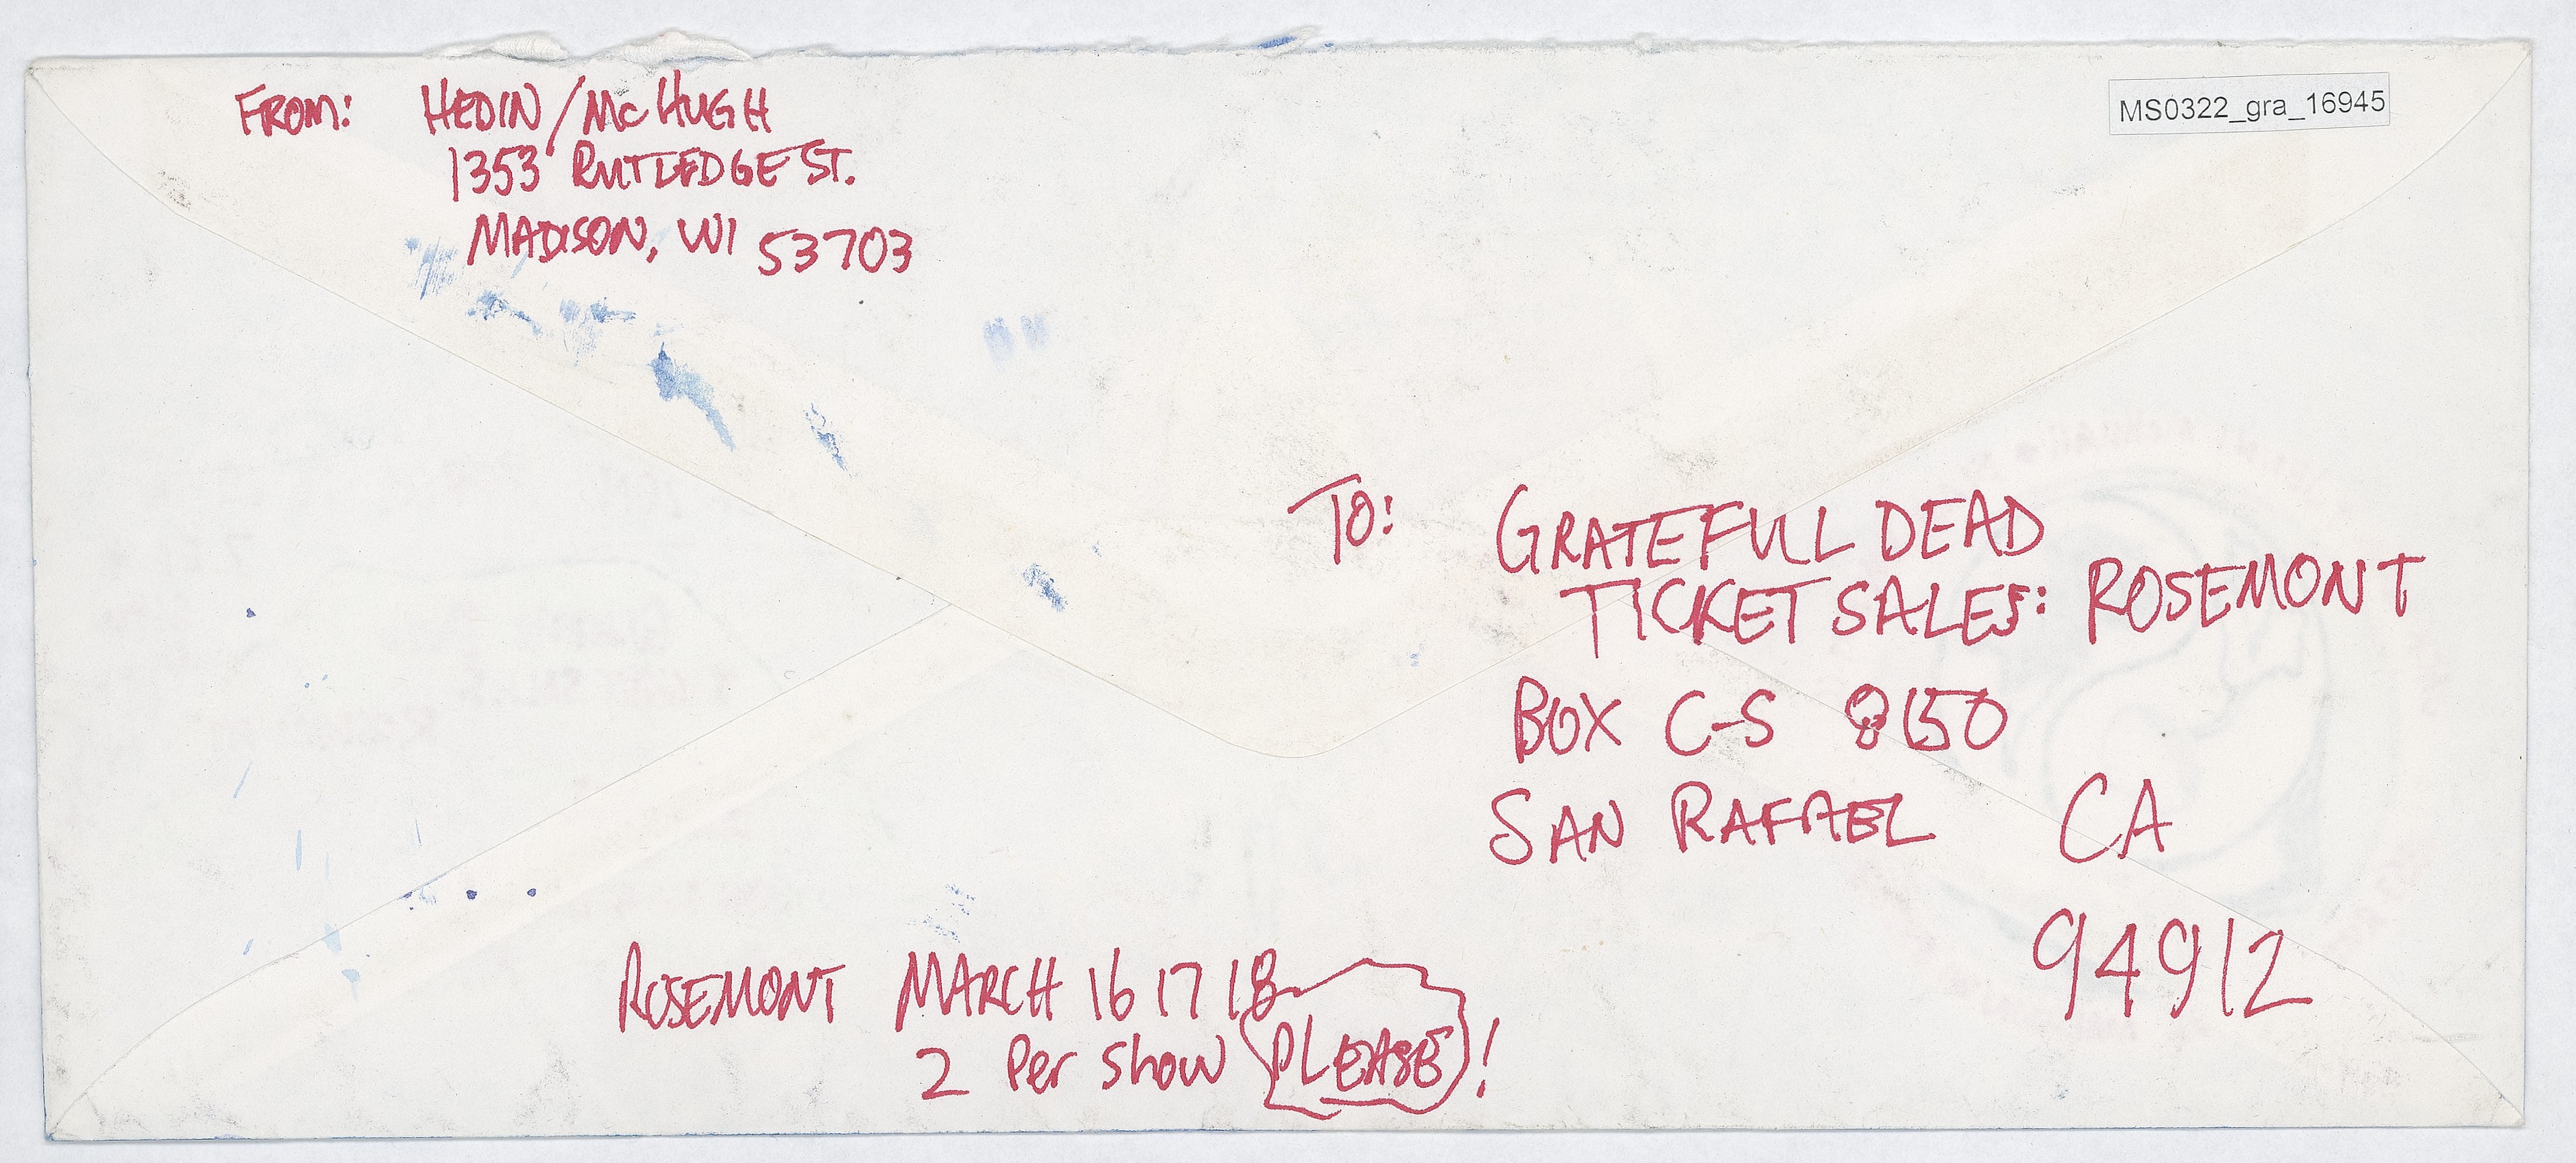 FROM: HEDIN/McHUGH
1353 RUTLEDGE ST.
MADISON, WI 53703
MS0322_gra_16945
TO: GRATEFULL DEAD
TICKET SALES: ROSEMONT
BOX C-S 8150
SAN RAFAEL CA
94912
ROSEMONT MARCH 16 17 18
2 Per Show PLEASE!